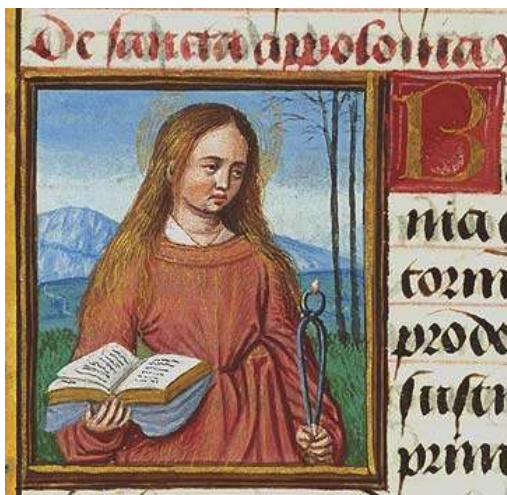 De sancta appolonia
B
nia
torm
pro do
susti
prim